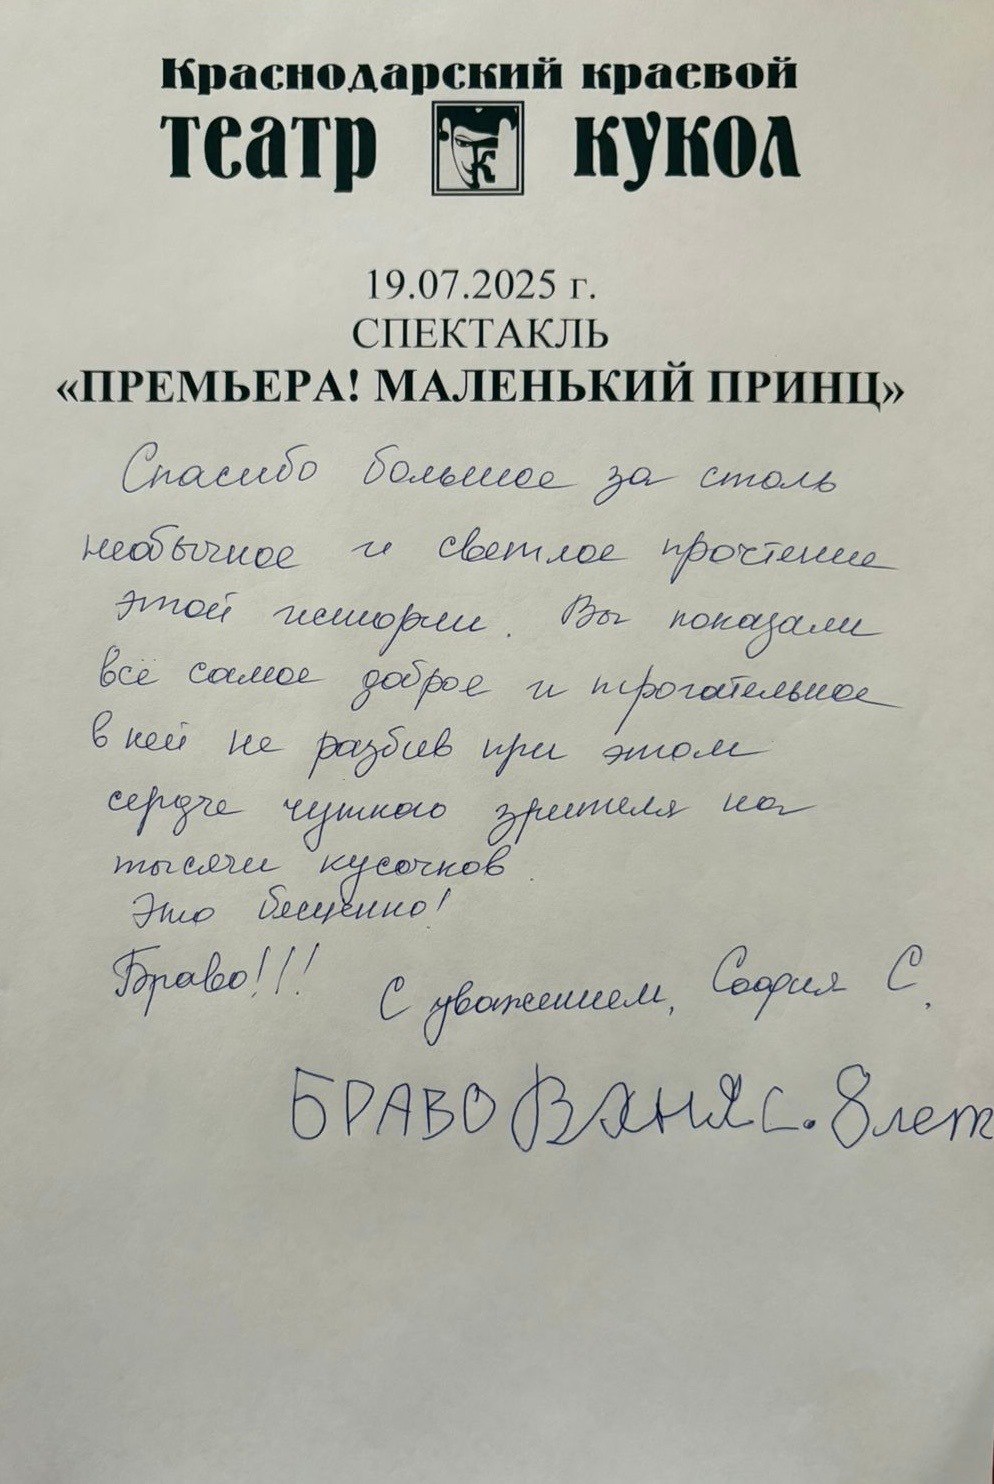 Краснодарский краевой
театр К кукол
19.07.2025 г.
СПЕКТАКЛЬ
«ПРЕМЬЕРА! МАЛЕНЬКИЙ ПРИНЦ»
Спасибо большое за столь
необычное и светлое прочтение
этой истории. Вы показали
всё самое доброе и трогательное
в ней не разбив при этом
сердце чуткого зрителя на
тысячи кусочков.
Это бесценно!
Браво!!!
С уважением, София С.
БРАВО ВАНЯ С. 8 лет